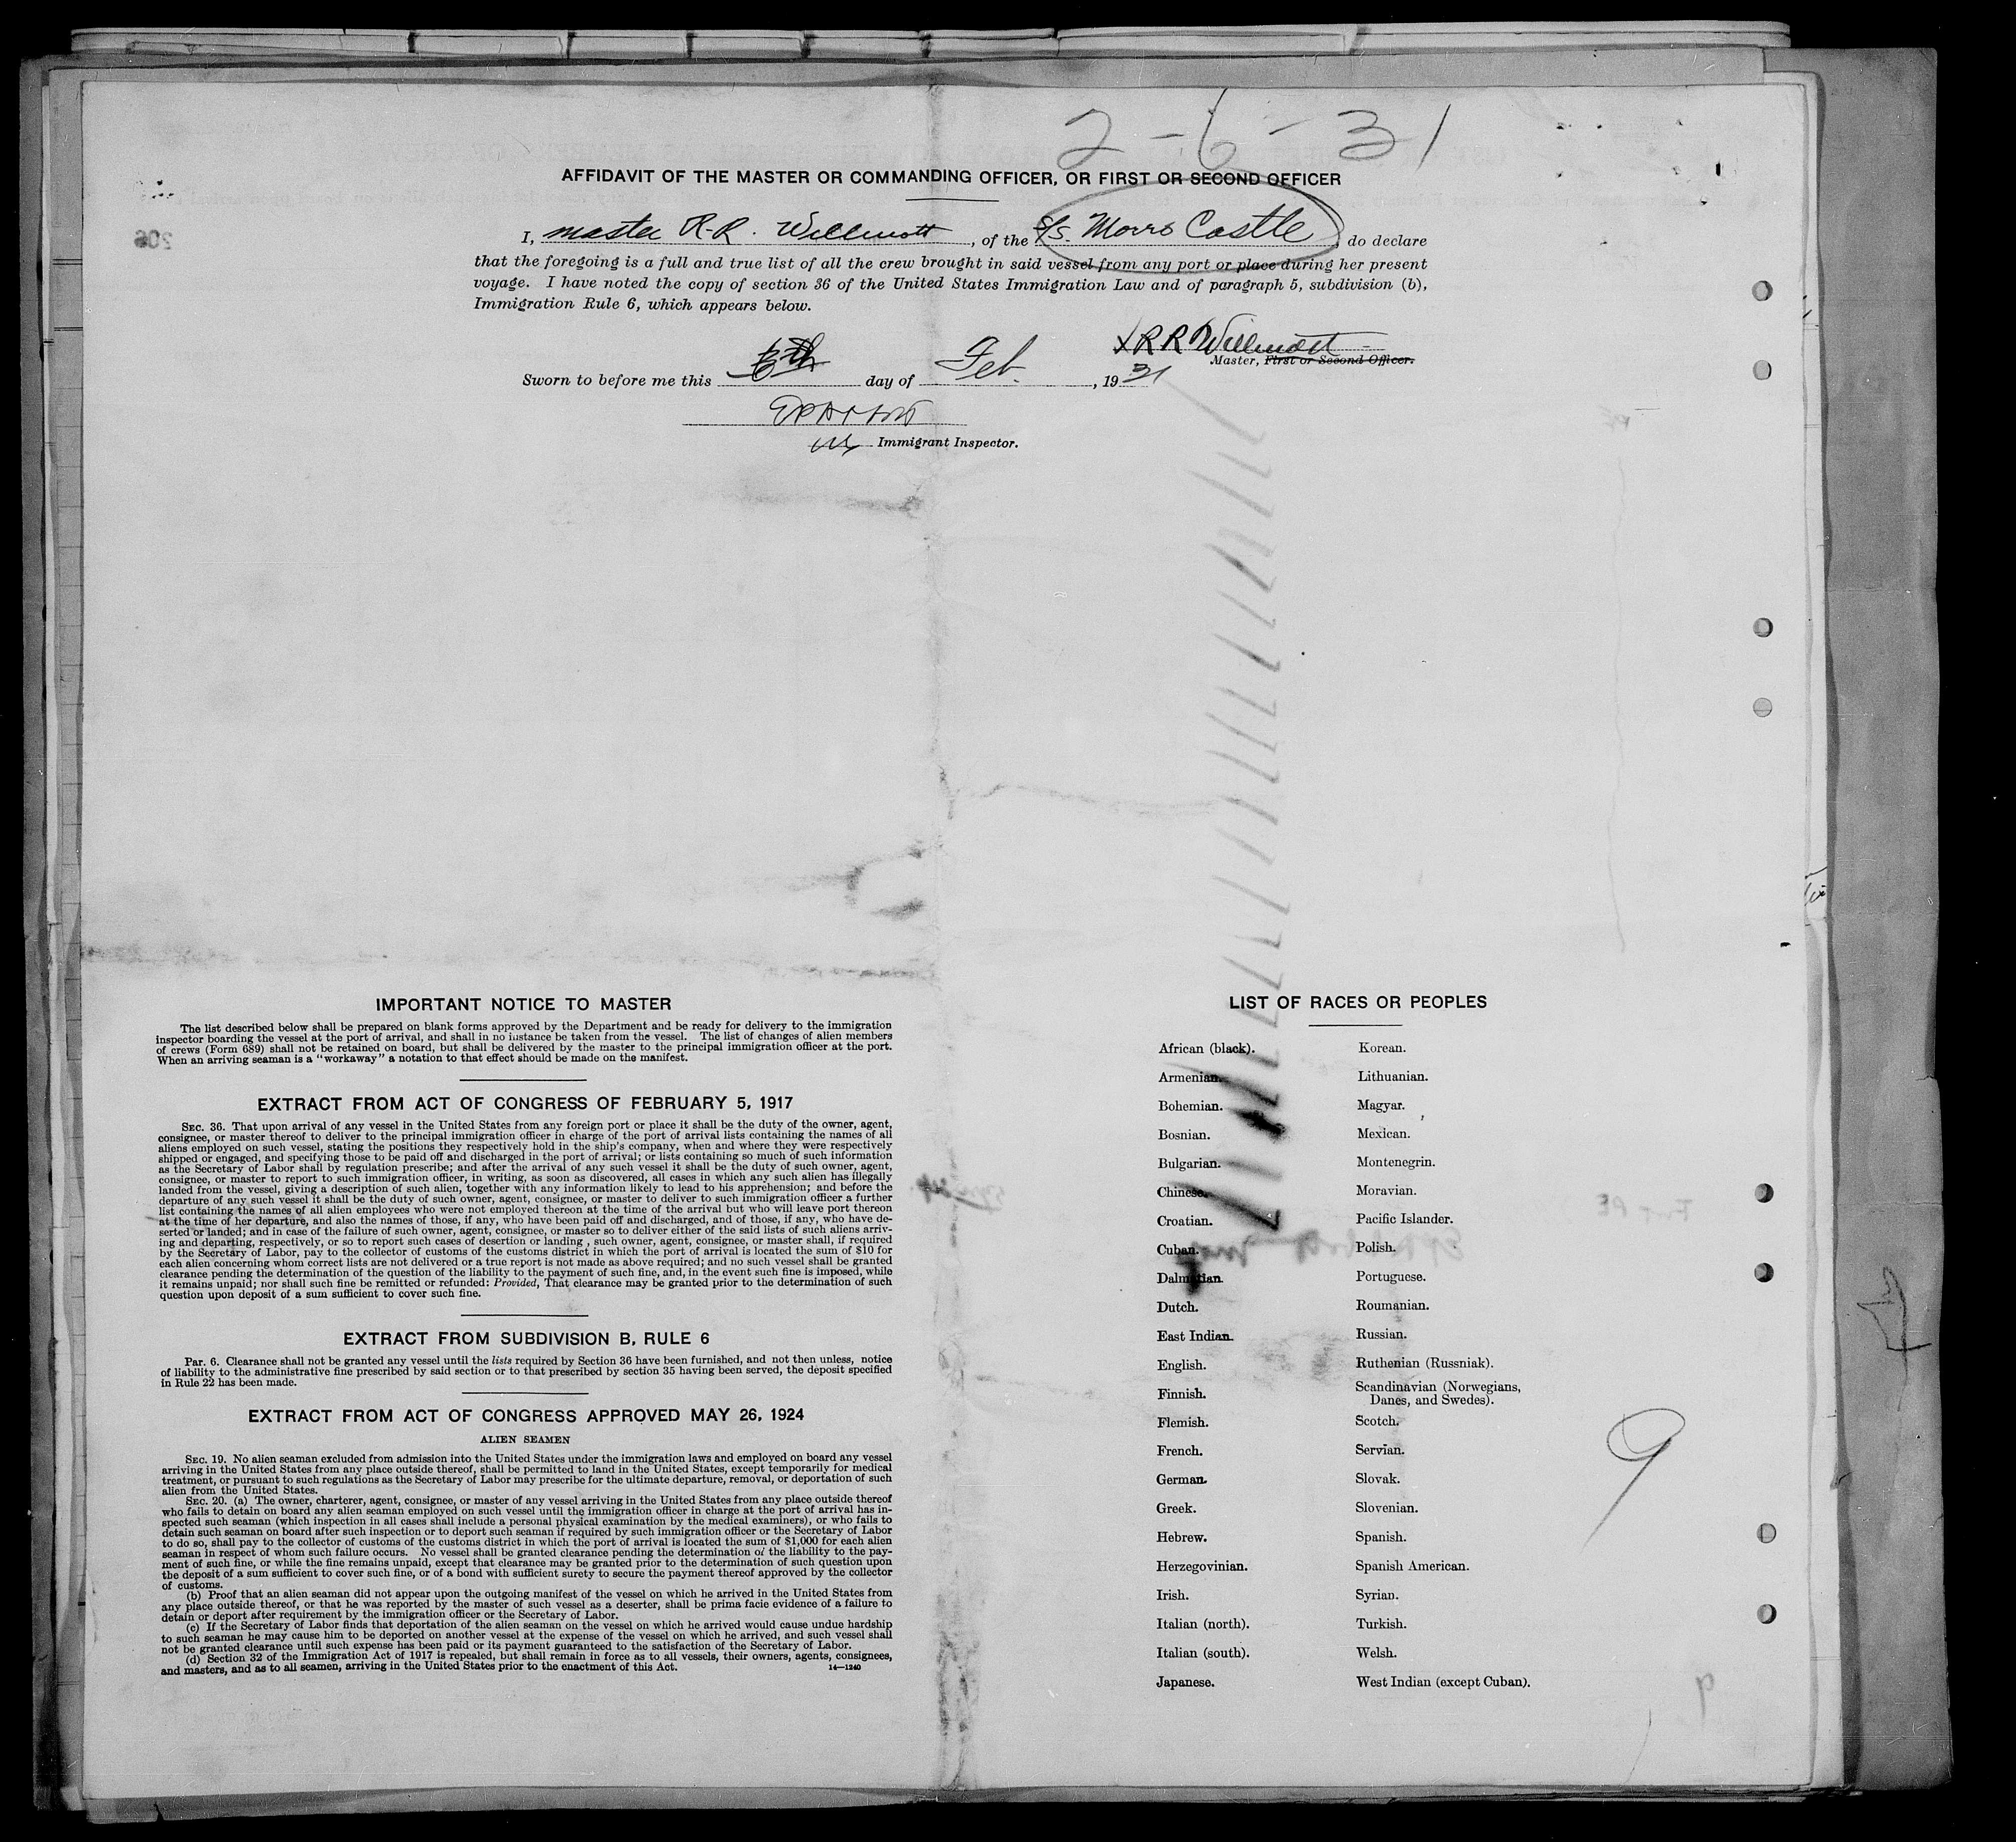 2-6-31
AFFIDAVIT OF THE MASTER OR COMMANDING OFFICER, OR FIRST OR SECOND OFFICER
I, master R.R. Willmott, of the S/S. Morro Castle, do declare
that the foregoing is a full and true list of all the crew brought in said vessel from any port or place during her present
voyage. I have noted the copy of section 36 of the United States Immigration Law and of paragraph 5, subdivision (b),
Immigration Rule 6, which appears below.
X R R Willmott
Master, First or Second Officer.
Sworn to before me this 6th day of Feb., 1931
Immigrant Inspector.
IMPORTANT NOTICE TO MASTER
The list described below shall be prepared on blank forms approved by the Department and be ready for delivery to the immigration
inspector boarding the vessel at the port of arrival, and shall in no instance be taken from the vessel. The list of changes of alien members
of crews (Form 689) shall not be retained on board, but shall be delivered by the master to the principal immigration officer at the port.
When an arriving seaman is a "workaway" a notation to that effect should be made on the manifest.
EXTRACT FROM ACT OF CONGRESS OF FEBRUARY 5, 1917
SEC. 36. That upon arrival of any vessel in the United States from any foreign port or place it shall be the duty of the owner, agent,
consignee, or master thereof to deliver to the principal immigration officer in charge of the port of arrival lists containing the names of all
aliens employed on such vessel, stating the positions they respectively hold in the ship's company, when and where they were respectively
shipped or engaged, and specifying those to be paid off and discharged in the port of arrival; or lists containing so much of such information
as the Secretary of Labor shall by regulation prescribe; and after the arrival of any such vessel it shall be the duty of such owner, agent,
consignee, or master to report to such immigration officer, in writing, as soon as discovered, all cases in which any such alien has illegally
landed from the vessel, giving a description of such alien, together with any information likely to lead to his apprehension; and before the
departure of any such vessel it shall be the duty of such owner, agent, consignee, or master to deliver to such immigration officer a further
list containing the names of all alien employees who were not employed thereon at the time of the arrival but who will leave port thereon
at the time of her departure, and also the names of those, if any, who have been paid off and discharged, and of those, if any, who have de-
serted or landed; and in case of the failure of such owner, agent, consignee, or master so to deliver either of the said lists of such aliens arriv-
ing and departing, respectively, or so to report such cases of desertion or landing , such owner, agent, consignee, or master shall, if required
by the Secretary of Labor, pay to the collector of customs of the customs district in which the port of arrival is located the sum of $10 for
each alien concerning whom correct lists are not delivered or a true report is not made as above required; and no such vessel shall be granted
clearance pending the determination of the question of the liability to the payment of such fine, and, in the event such fine is imposed, while
it remains unpaid; nor shall such fine be remitted or refunded: Provided, That clearance may be granted prior to the determination of such
question upon deposit of a sum sufficient to cover such fine.
EXTRACT FROM SUBDIVISION B, RULE 6
Par. 6. Clearance shall not be granted any vessel until the lists required by Section 36 have been furnished, and not then unless, notice
of liability to the administrative fine prescribed by said section or to that prescribed by section 35 having been served, the deposit specified
in Rule 22 has been made.
EXTRACT FROM ACT OF CONGRESS APPROVED MAY 26, 1924
ALIEN SEAMEN
SEC. 19. No alien seaman excluded from admission into the United States under the immigration laws and employed on board any vessel
arriving in the United States from any place outside thereof, shall be permitted to land in the United States, except temporarily for medical
treatment, or pursuant to such regulations as the Secretary of Labor may prescribe for the ultimate departure, removal, or deportation of such
alien from the United States.
SEC. 20. (a) The owner, charterer, agent, consignee, or master of any vessel arriving in the United States from any place outside thereof
who fails to detain on board any alien seaman employed on such vessel until the immigration officer in charge at the port of arrival has in-
spected such seaman (which inspection in all cases shall include a personal physical examination by the medical examiners), or who fails to
detain such seaman on board after such inspection or to deport such seaman if required by such immigration officer or the Secretary of Labor
to do so, shall pay to the collector of customs of the customs district in which the port of arrival is located the sum of $1,000 for each alien
seaman in respect of whom such failure occurs. No vessel shall be granted clearance pending the determination of the liability to the pay-
ment of such fine, or while the fine remains unpaid, except that clearance may be granted prior to the determination of such question upon
the deposit of a sum sufficient to cover such fine, or of a bond with sufficient surety to secure the payment thereof approved by the collector
of customs.
(b) Proof that an alien seaman did not appear upon the outgoing manifest of the vessel on which he arrived in the United States from
any place outside thereof, or that he was reported by the master of such vessel as a deserter, shall be prima facie evidence of a failure to
detain or deport after requirement by the immigration officer or the Secretary of Labor.
(c) If the Secretary of Labor finds that deportation of the alien seaman on the vessel on which he arrived would cause undue hardship
to such seaman he may cause him to be deported on another vessel at the expense of the vessel on which he arrived, and such vessel shall
not be granted clearance until such expense has been paid or its payment guaranteed to the satisfaction of the Secretary of Labor.
(d) Section 32 of the Immigration Act of 1917 is repealed, but shall remain in force as to all vessels, their owners, agents, consignees,
and masters, and as to all seamen, arriving in the United States prior to the enactment of this Act.
14—1240
LIST OF RACES OR PEOPLES
African (black).
Armenian.
Bohemian.
Bosnian.
Bulgarian.
Chinese.
Croatian.
Cuban.
Dalmatian.
Dutch.
East Indian.
English.
Finnish.
Flemish.
French.
German.
Greek.
Hebrew.
Herzegovinian.
Irish.
Italian (north).
Italian (south).
Japanese.
Korean.
Lithuanian.
Magyar.
Mexican.
Montenegrin.
Moravian.
Pacific Islander.
Polish.
Portuguese.
Roumanian.
Russian.
Ruthenian (Russniak).
Scandinavian (Norwegians,
Danes, and Swedes).
Scotch.
Servian.
Slovak.
Slovenian.
Spanish.
Spanish American.
Syrian.
Turkish.
Welsh.
West Indian (except Cuban).
9